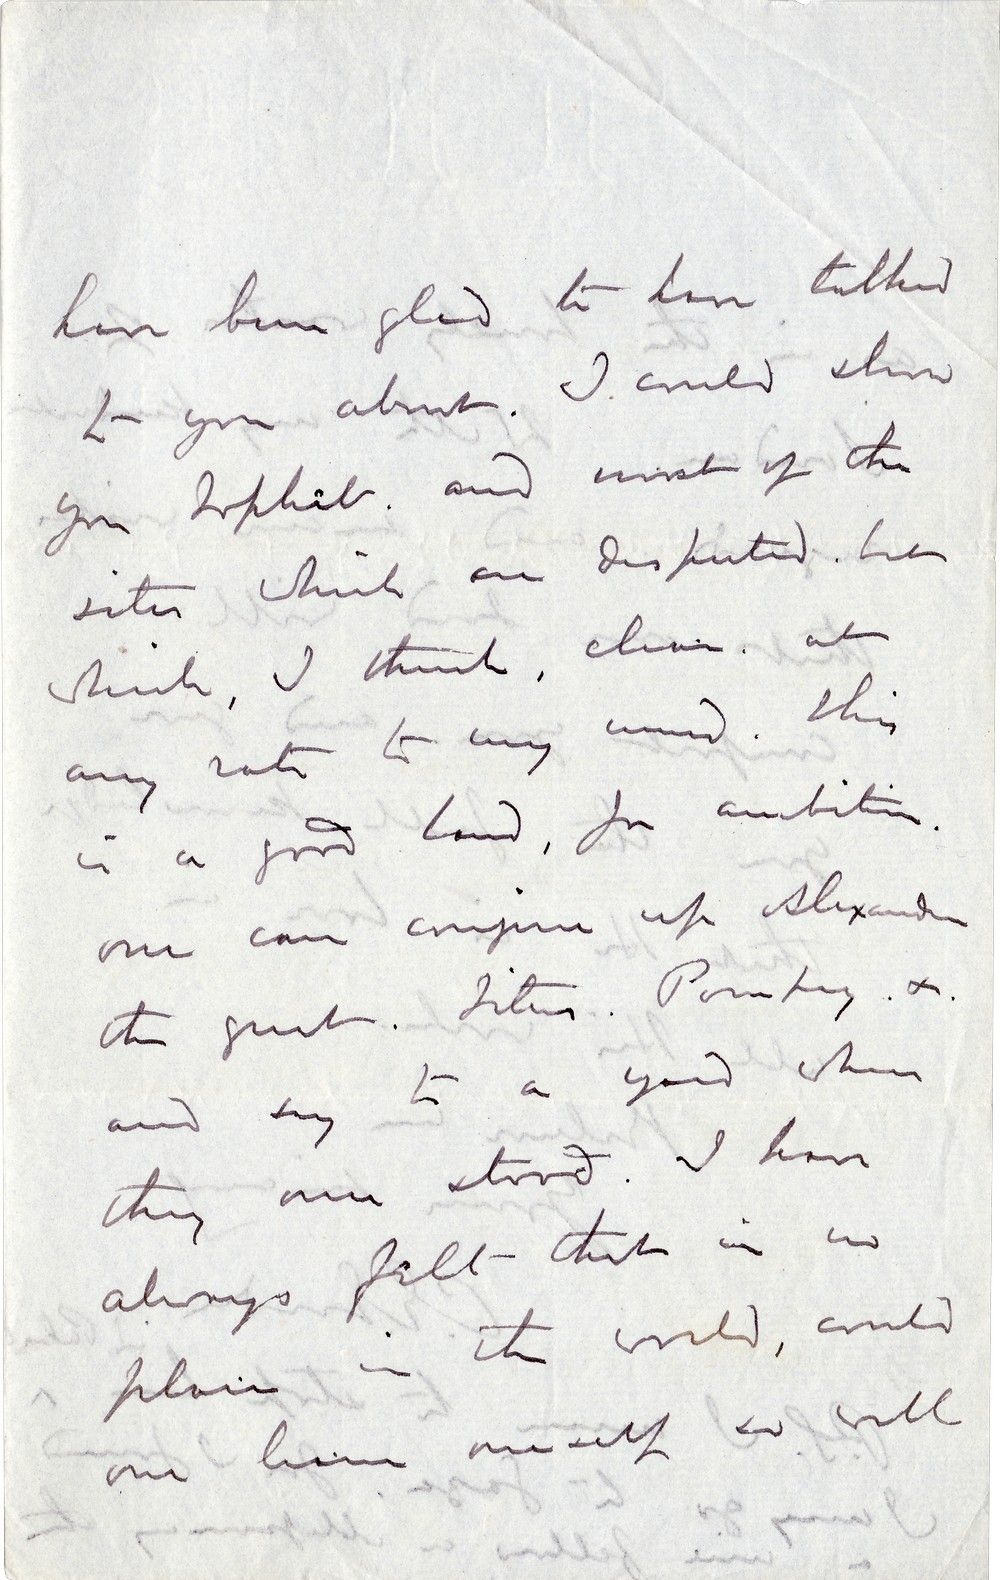 have been glad to have talked
to you about. I could show
you Tophet. and most of the
sites which are disputed. but
which, I think, clear. at
any rate to my mind. This
is a good land, for ambition.
one can conjure up Alexander
the great. Titus. Pompey. &.
and say to a yard where
they once stood. I have
always felt that in no
place in the world, could
one bury oneself so well